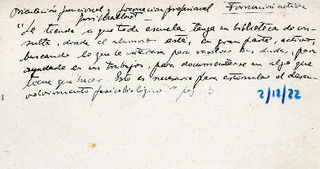 Orientación funcional, formación profesional Formación activa
"Se tiende a que toda escuela tenga su biblioteca de con-
sulta, donde el alumno esté, en gran parte, activo,
buscando lo que le interesa para resolver su duda, para
ayudarle en sus trabajos, para documentarse en algo que
tiene que hacer. Esto es necesario para estimular el desen-
volvimiento psicobiológico." pg. 3
2/12/22